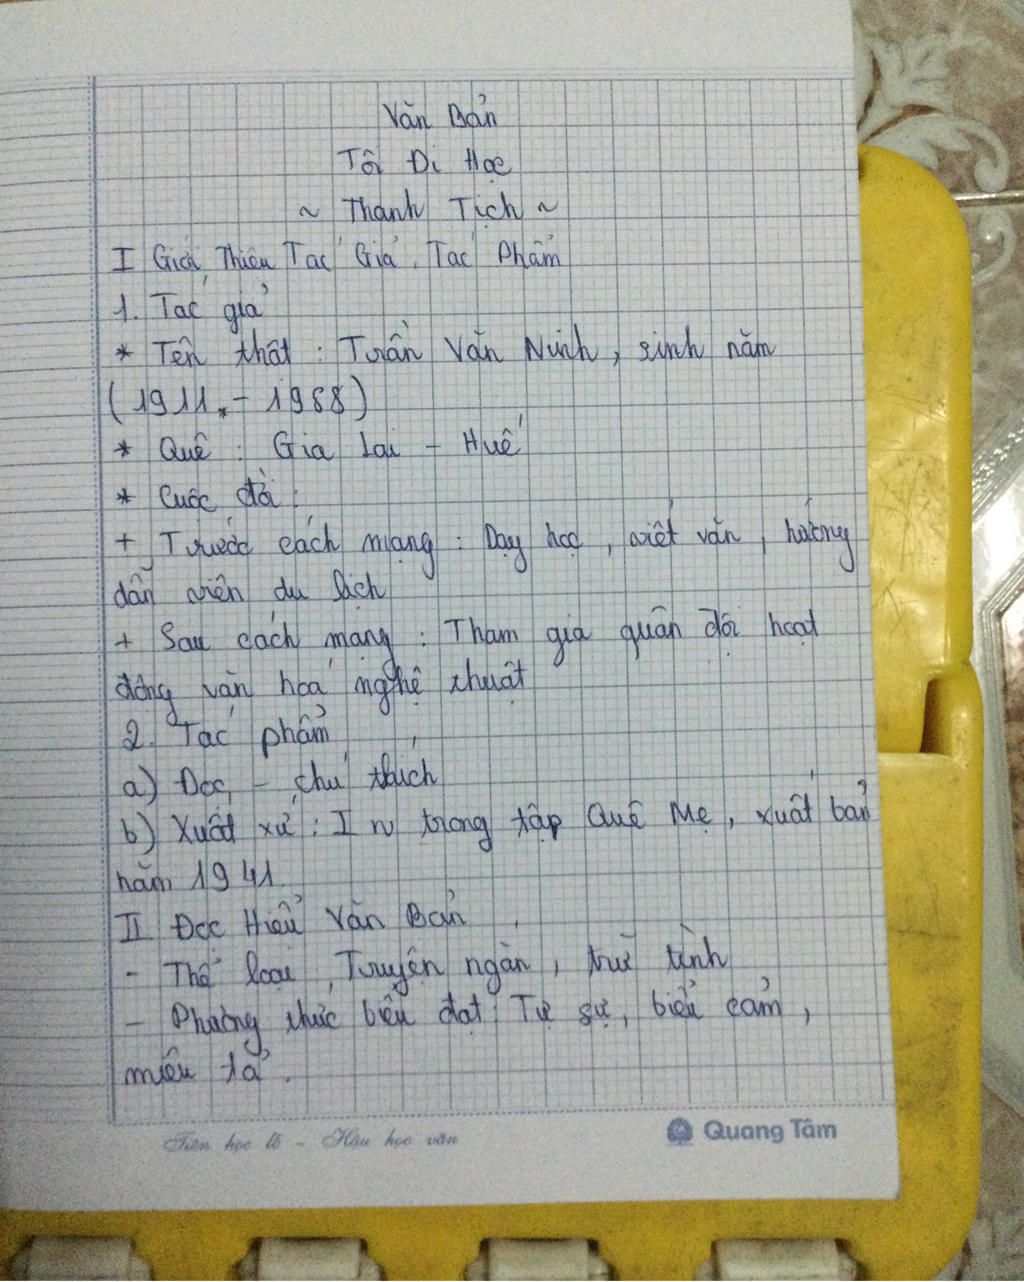 Văn Bản
Tôi Đi Học
~ Thanh Tịch ~
I Giới Thiệu Tác Giả, Tác Phẩm
1. Tác giả
* Tên thật : Trần Văn Ninh, sinh năm
(1911 - 1988)
* Quê : Gia Lai - Huế
* Cuộc đời :
+ Trước cách mạng : Dạy học, viết văn, hướng
dẫn viên du lịch
+ Sau cách mạng : Tham gia quân đội hoạt
động văn hoá nghệ thuật
2. Tác phẩm
a) Đọc - chú thích
b) Xuất xứ : In trong tập Quê Mẹ, xuất bản
năm 1941.
II Đọc Hiểu Văn Bản
- Thể loại, Truyện ngắn, trữ tình
- Phương thức biểu đạt : Tự sự, biểu cảm,
miêu tả.
Tiên học lễ - Hậu học văn
Quang Tâm